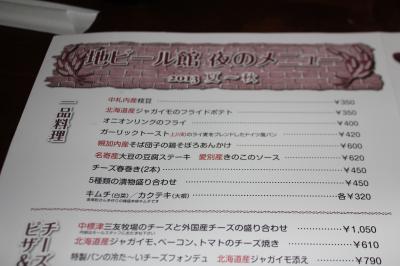 地ビール館 夜のメニュー
2013 夏〜秋
一品料理
中札内産枝豆 ¥350
北海道産ジャガイモのフライドポテト ¥350
オニオンリングのフライ ¥400
ガーリックトースト 上川町のライ麦をブレンドしたドイツ風パン ¥420
幌加内産そば団子の鶏そぼろあんかけ ¥600
名寄産大豆の豆腐ステーキ 愛別産きのこのソース ¥620
チーズ春巻き(2本) ¥450
5種類の漬物盛り合わせ ¥450
キムチ(白菜)／カクテキ(大根) 各¥320
チーズ
ピザ&
中標津三友牧場のチーズと外国産チーズの盛り合わせ ¥1,050
北海道産ジャガイモ、ベーコン、トマトのチーズ焼き ¥610
特製パンの冷た〜いチーズフォンデュ 北海道産ジャガイモ添え ¥790